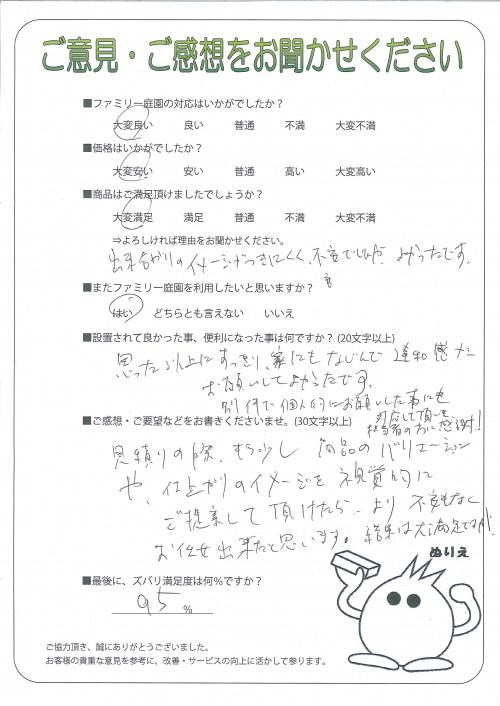 ご意見・ご感想をお聞かせください
■ファミリー庭園の対応はいかがでしたか？
大変良い 良い 普通 不満 大変不満
■価格はいかがでしたか？
大変安い 安い 普通 高い 大変高い
■商品はご満足頂けましたでしょうか？
大変満足 満足 普通 不満 大変不満
⇒よろしければ理由をお聞かせください。
出来上がりのイメージがつきにくく、不安でしたが よかったです。
■またファミリー庭園を利用したいと思いますか？
はい どちらとも言えない いいえ
■設置されて良かった事、便利になった事は何ですか？(20文字以上)
思った以上にすっきり、家にもなじんで 違和感ナシ
お願いしてよかったです。
別件で個人的にお願いした事にも
対応して頂いた
担当者の方に感謝！
■ご感想・ご要望などをお書きくださいませ。(30文字以上)
見積りの際、もう少し 商品のバリエーション
や、仕上がりのイメージを視覚的に
ご提案して頂けたら、より不安もなく
お任せ出来たと思います。結果は大満足ですが！
ぬりえ
■最後に、ズバリ満足度は何％ですか？
95 ％
ご協力頂き、誠にありがとうございました。
お客様の貴重な意見を参考に、改善・サービスの向上に活かして参ります。